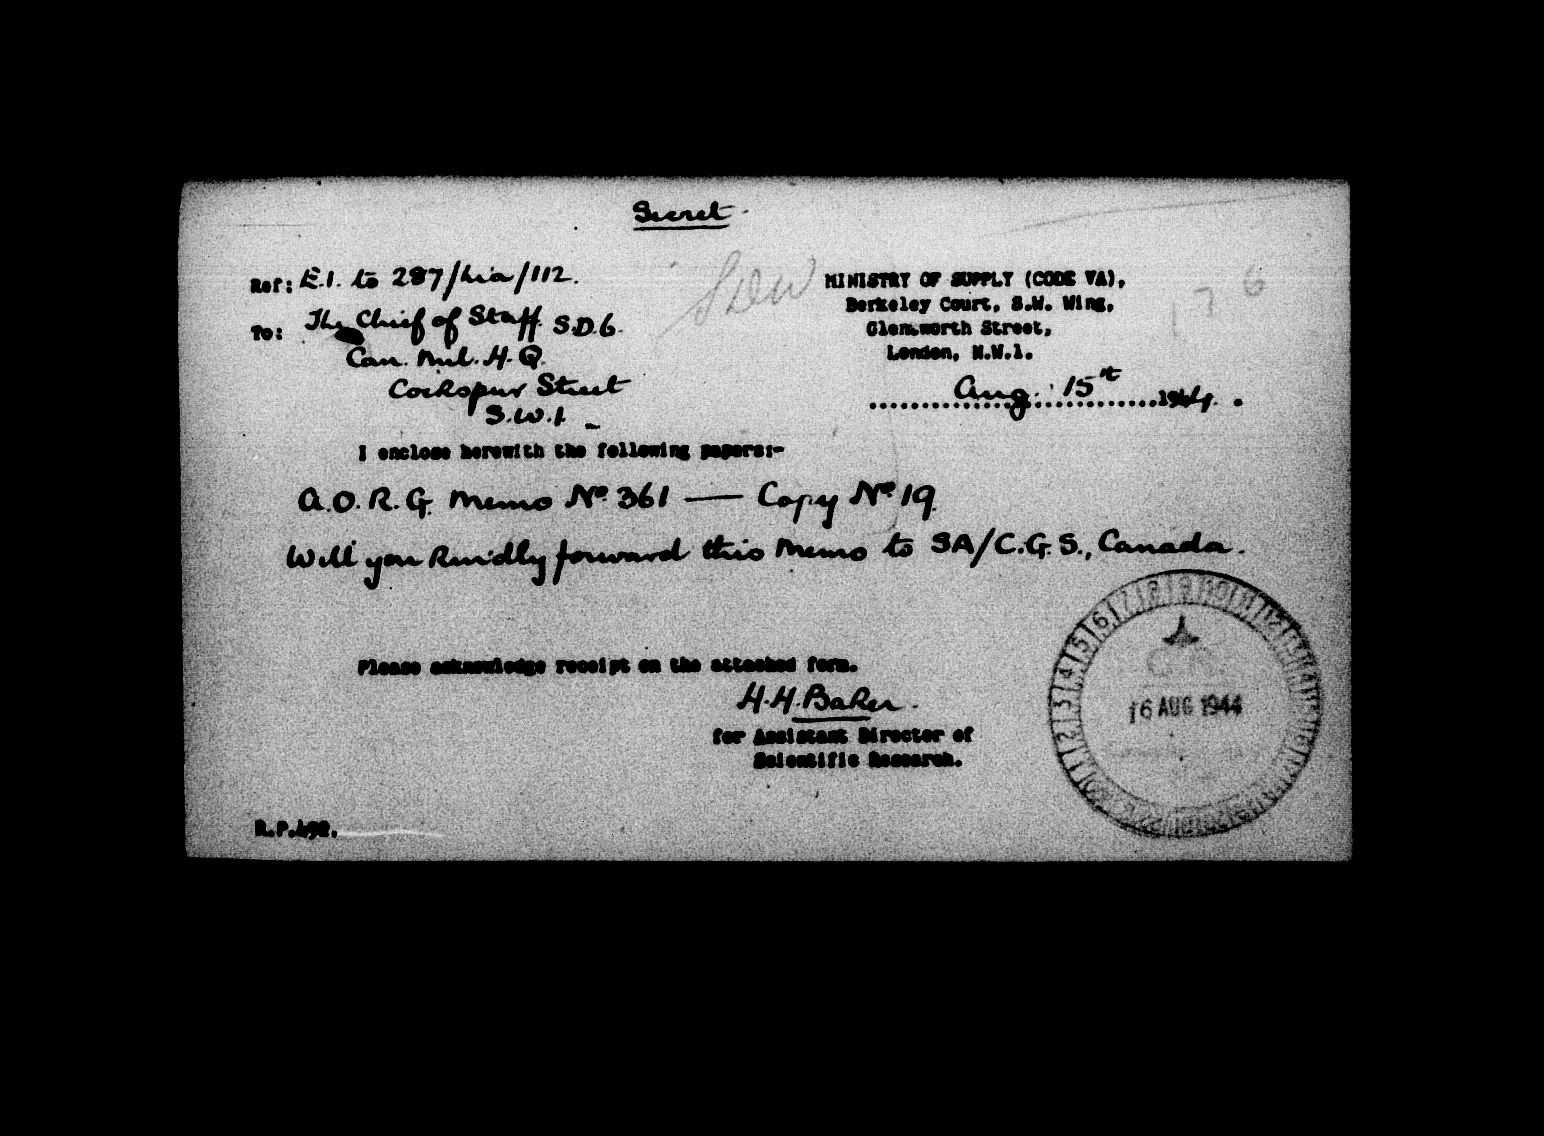 Secret
Ref: E.1. to 287/Mia/112.
MINISTRY OF SUPPLY (CODE VA),
Berkeley Court, S.W. Wing,
Glentworth Street,
London, N.W.1.
176
To: The Chief of Staff S.D.6.
Can. Mil. H.Q.
Cockspur Street
S.W.1.
Aug. 15th 1944.
I enclose herewith the following papers:-
A.O.R.G. Memo No. 361 — Copy No. 19.
Will you kindly forward this Memo to SA/C.G.S., Canada.
Please acknowledge receipt on the attached form.
H.H. Baker.
for Assistant Director of
Scientific Research.
16 AUG 1944
R.P.492.